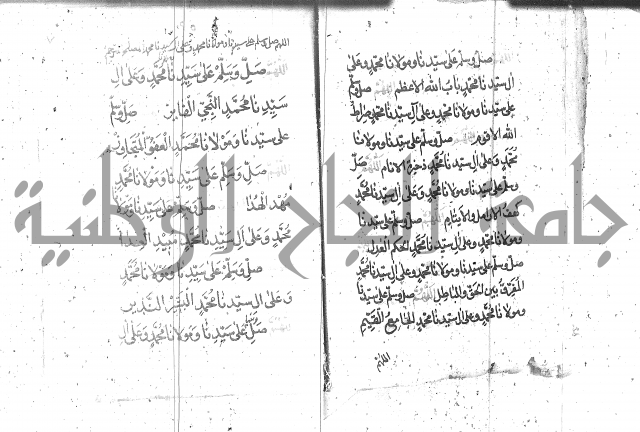 صل وسلم على سيدنا ومولانا محمد وعلى
ال سيدنا محمد باب الله الاعظم صل وسلم
على سيدنا ومولانا محمد وعلى آل سيدنا محمد صراط
الله الاقوم صل وسلم على سيدنا ومولانا
محمد وعلى ال سيدنا محمد ذخيرة الانام صل
وسلم على سيدنا ومولانا محمد وعلى ال سيدنا محمد
كهف الارامل والايتام صل وسلم على سيدنا
ومولانا محمد وعلى ال سيدنا محمد الحكم العدل
صل وسلم على سيدنا ومولانا محمد وعلى ال سيدنا محمد
المفرق بين الحق والباطل صل وسلم على سيدنا
ومولانا محمد وعلى ال سيدنا محمد الجامع القيم
اللهم
اللهم صل وسلم على سيدنا ومولانا محمد وعلى ال سيدنا محمد
صل وسلم على سيدنا محمد وعلى ال
سيدنا محمد النبي الفائز صل وسلم
على سيدنا ومولانا محمد العفو المتجاوز
صل وسلم على سيدنا ومولانا محمد
صل وسلم على سيدنا ومولانا
محمد وعلى ال سيدنا محمد مبيد العدا
صل وسلم على سيدنا ومولانا محمد
وعلى ال سيدنا محمد البشير النذير
صل على سيدنا ومولانا محمد وعلى ال
جامعة النجاح الوطنية